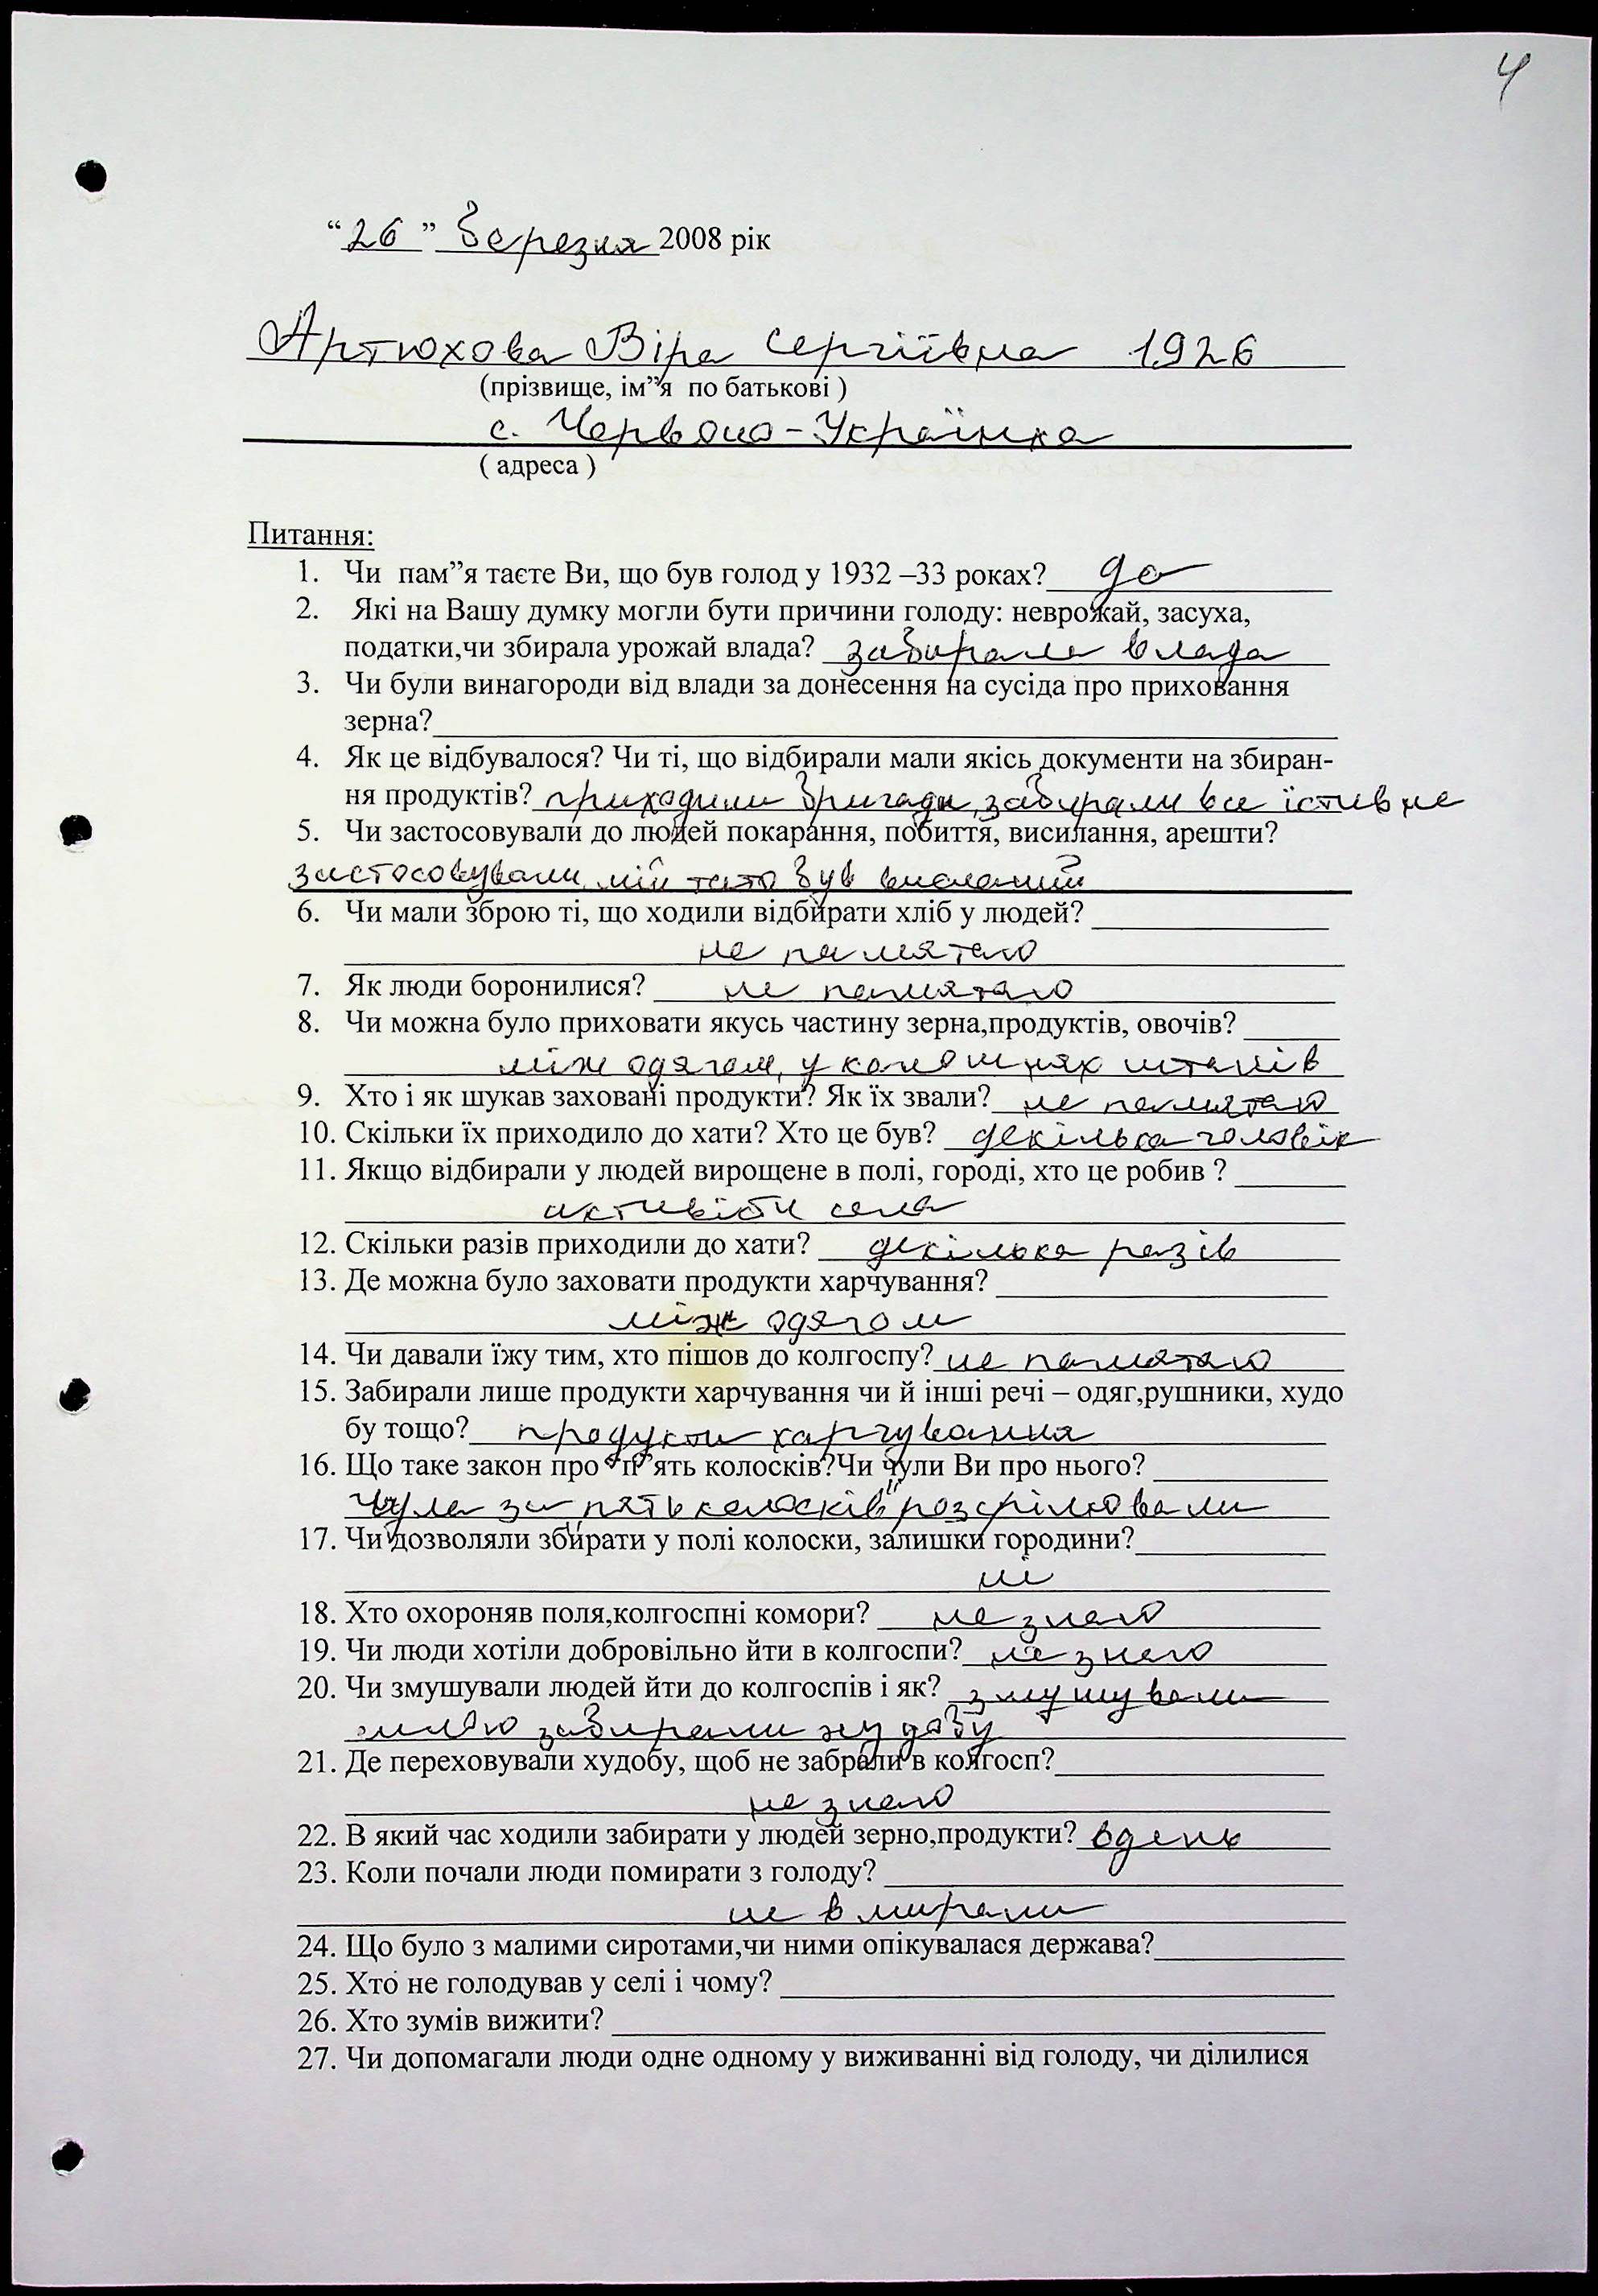 4
“26” березня 2008 рік
Артюхова Віра Сергіївна 1926
(прізвище, ім”я по батькові )
с. Червоно-Українка
( адреса )
Питання:
1. Чи пам”я таєте Ви, що був голод у 1932 –33 роках? да
2. Які на Вашу думку могли бути причини голоду: неврожай, засуха,
податки,чи збирала урожай влада? забирала влада
3. Чи були винагороди від влади за донесення на сусіда про приховання
зерна?
4. Як це відбувалося? Чи ті, що відбирали мали якісь документи на збиран-
ня продуктів? приходили бригади, забирали все їстивне
5. Чи застосовували до людей покарання, побиття, висилання, арешти?
застосовували, мій тато був висланий
6. Чи мали зброю ті, що ходили відбирати хліб у людей?
не памятаю
7. Як люди боронилися? не памятаю
8. Чи можна було приховати якусь частину зерна,продуктів, овочів?
між одягом, у калошнях штанів
9. Хто і як шукав заховані продукти? Як їх звали? не памятаю
10. Скільки їх приходило до хати? Хто це був? декілька чоловік
11. Якщо відбирали у людей вирощене в полі, городі, хто це робив ?
активісти села
12. Скільки разів приходили до хати? декілька разів
13. Де можна було заховати продукти харчування?
між одягом
14. Чи давали їжу тим, хто пішов до колгоспу? не памятаю
15. Забирали лише продукти харчування чи й інші речі – одяг,рушники, худо
бу тощо? продукти харчування
16. Що таке закон про “п”ять колосків?Чи чули Ви про нього?
Чула за "пять колосків" розстрілювали
17. Чи дозволяли збирати у полі колоски, залишки городини?
ні
18. Хто охороняв поля,колгоспні комори? не знаю
19. Чи люди хотіли добровільно йти в колгоспи? не знаю
20. Чи змушували людей йти до колгоспів і як? змушували
забирали худобу
21. Де переховували худобу, щоб не забрали в колгосп?
не знаю
22. В який час ходили забирати у людей зерно,продукти? вдень
23. Коли почали люди помирати з голоду?
не вмирали
24. Що було з малими сиротами,чи ними опікувалася держава?
25. Хто не голодував у селі і чому?
26. Хто зумів вижити?
27. Чи допомагали люди одне одному у виживанні від голоду, чи ділилися